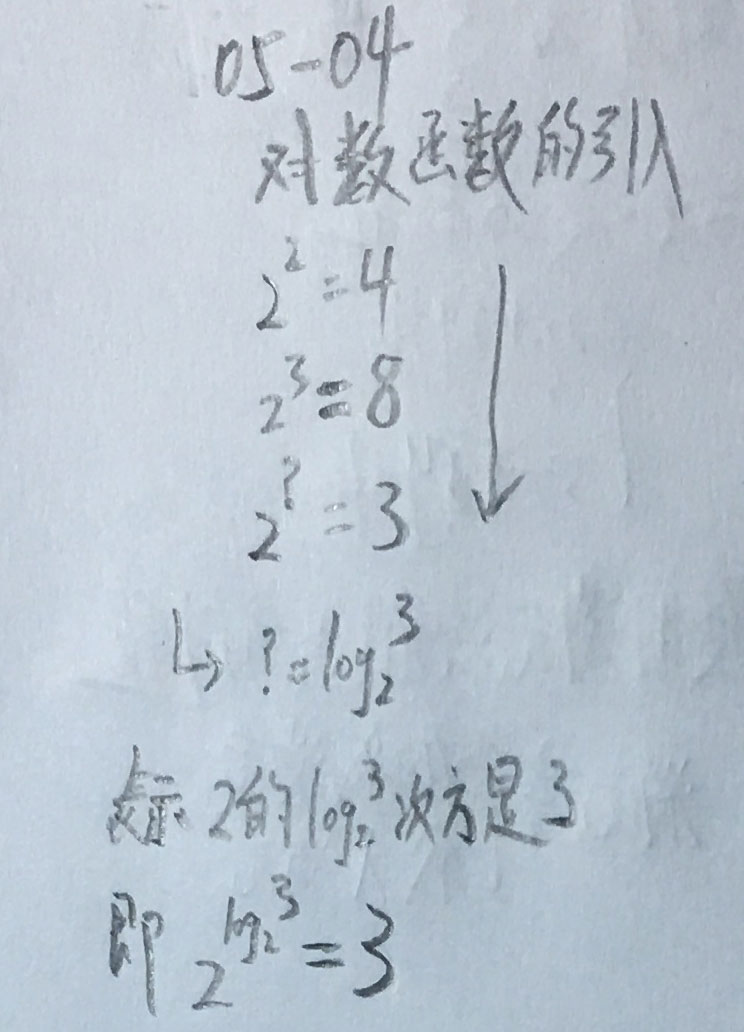 05-04
对数函数的引入
2² = 4
2³ = 8
2^? = 3
↳ ? = log₂³
表示 2的log₂³次方是3
即 2^log₂³ = 3